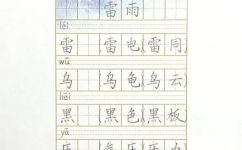 雷雨
léi
雷 雷电 雷周
wū
乌 乌龟 乌云
hēi
黑 黑色 黑板
yā
压 气压 压力